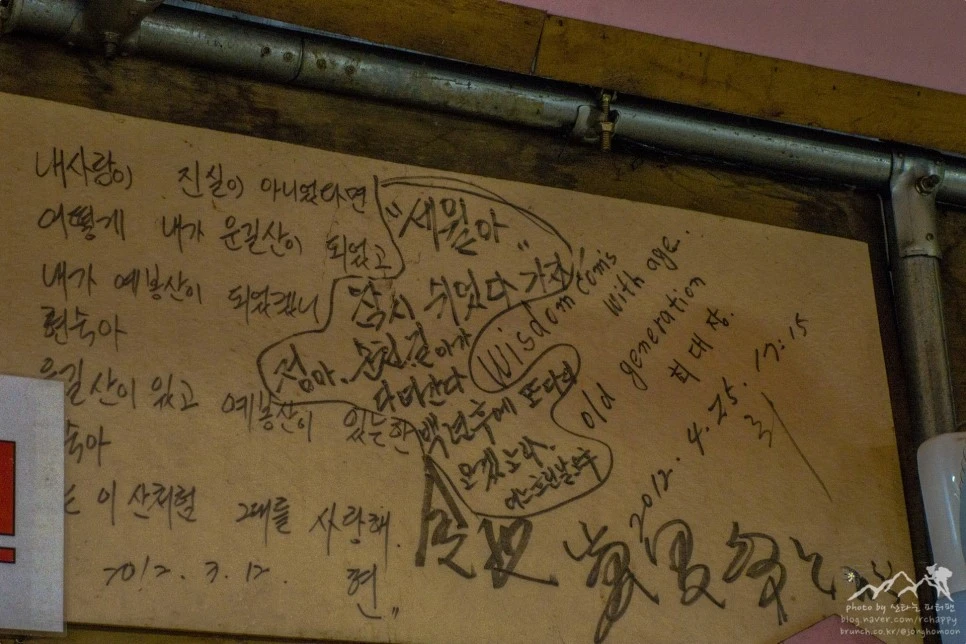 내사랑이 진실이 아니었다면
어떻게 내가 운길산이 되었고
내가 예봉산이 되었겠니
현숙아
운길산이 있고 예봉산이 있는한
숙아
는 이 산처럼 그대를 사랑해.
2012. 3. 12. 현"
"세월아"
잠시 쉬었다 가자
다녀간다
백년후에 또다시
오겠노라.
Wisdom coms
with age.
old generation
최대장.
2012. 4. 25. 17:15
photo by 신라는 피러팬
blog.naver.com/rchappy
brunch.co.kr/@jonghomoon